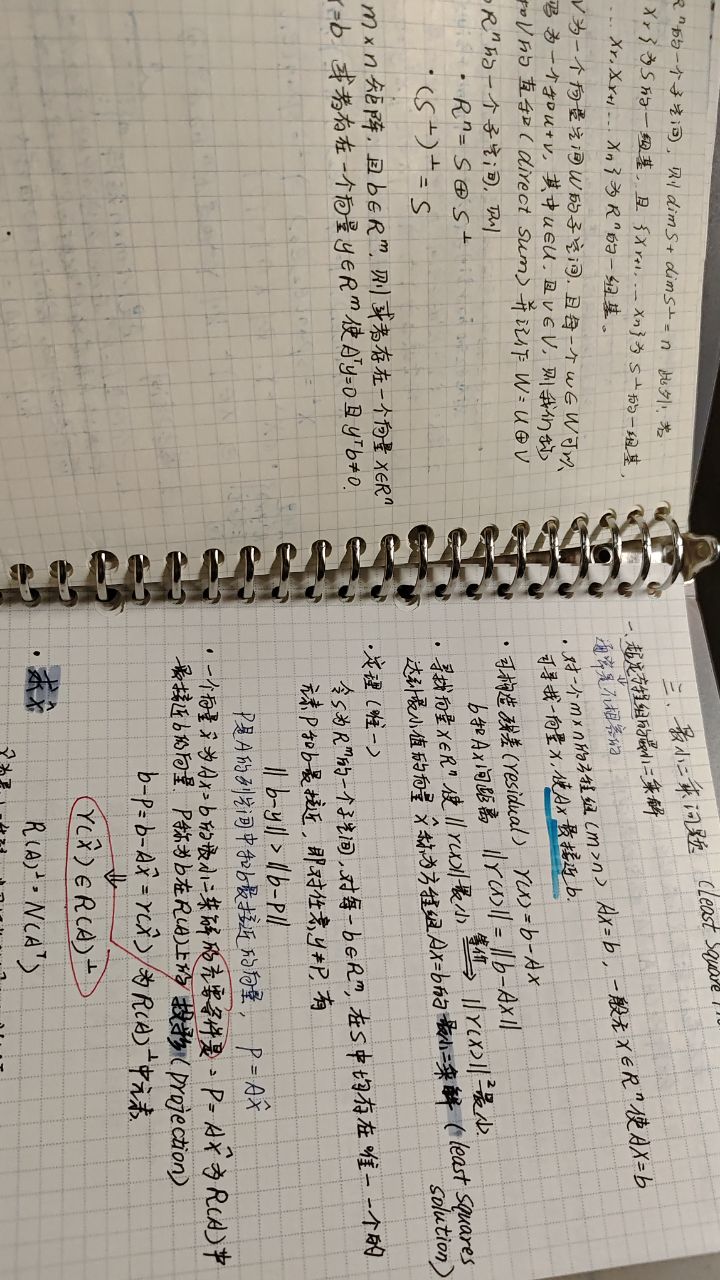 R^n的一个子空间, 则 dimS + dimS^⊥ = n 此外, 若
Xr}为S的一组基, 且 {Xr+1, … Xn}为 S^⊥的一组基,
… Xr, Xr+1 … Xn}为R^n的一组基。
V为一个向量空间W的子空间, 且每一个w∈W可以
为一个和u+v, 其中u∈U, 且v∈V, 则我们称
和V的直和 (direct sum) 并记作 W = U⊕V
R^n的一个子空间, 则
· R^n = S⊕S^⊥
· (S^⊥)^⊥ = S
m×n矩阵, 且b∈R^m, 则或者存在一个向量x∈R^n
=b, 或者存在一个向量y∈R^m使A^Ty=0且y^Tb≠0.
三、最小二乘问题 (Least Square
一、超定方程组的最小二乘解
· 对一个m×n的方程组 (m>n) Ax=b, 一般无x∈R^n使Ax=b
可寻找一向量x, 使Ax最接近b.
· 可构造残差 (residual) r(x) = b-Ax
b和Ax间距离 ||r(x)|| = ||b-Ax||
· 寻找向量x∈R^n使||r(x)||最小 等价 ⟹ ||r(x)||²最小.
达到最小值的向量x̂称为方程组Ax=b的最小二乘解 (least squares
solution)
· 定理 (唯一)
令S为R^m的一个子空间, 对每一b∈R^m, 在S中均存在唯一一个的
元素P和b最接近, 即对任意y≠P, 有
||b-y|| > ||b-P||
P是A的列空间中和b最接近的向量, P=Ax̂
· 一个向量x̂为Ax=b的最小二乘解的充要条件是: P=Ax̂为R(A)中
最接近b的向量 P称为b在R(A)上的投影 (projection)
b-P=b-Ax̂=r(x̂) 为R(A)^⊥中元素
⇓
r(x̂)∈R(A)^⊥
· 求x̂
R(A)^⊥=N(A^T)